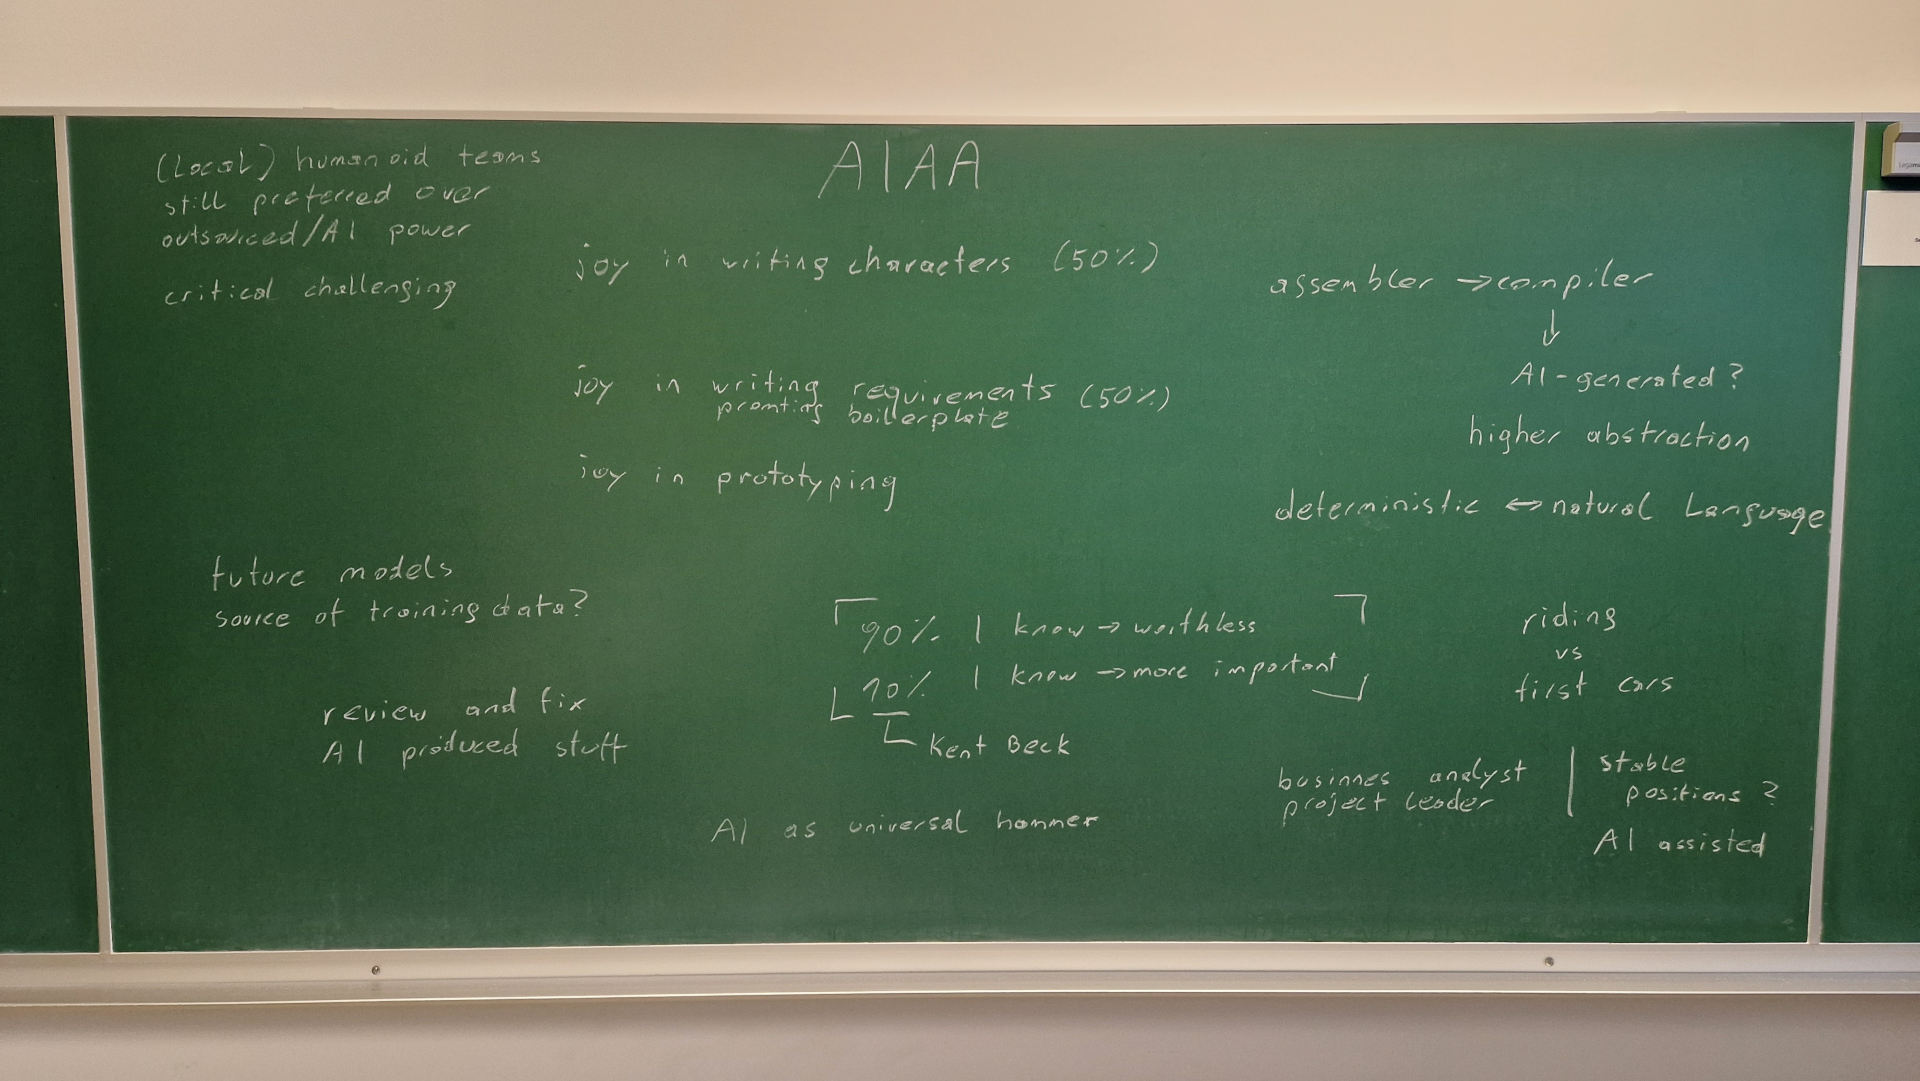 AIAA
(local) humanoid teams
still preferred over
outsourced/AI power
critical challenging
joy in writing characters (50%)
joy in writing requirements (50%)
promting boilerplate
joy in prototyping
assembler → compiler
↓
AI-generated?
higher abstraction
deterministic ↔ natural Language
future models
source of training data?
review and fix
AI produced stuff
90% I know → worthless
10% I know → more important
Kent Beck
AI as universal hammer
riding
vs
first cars
businnes analyst
project leader
stable
positions?
AI assisted